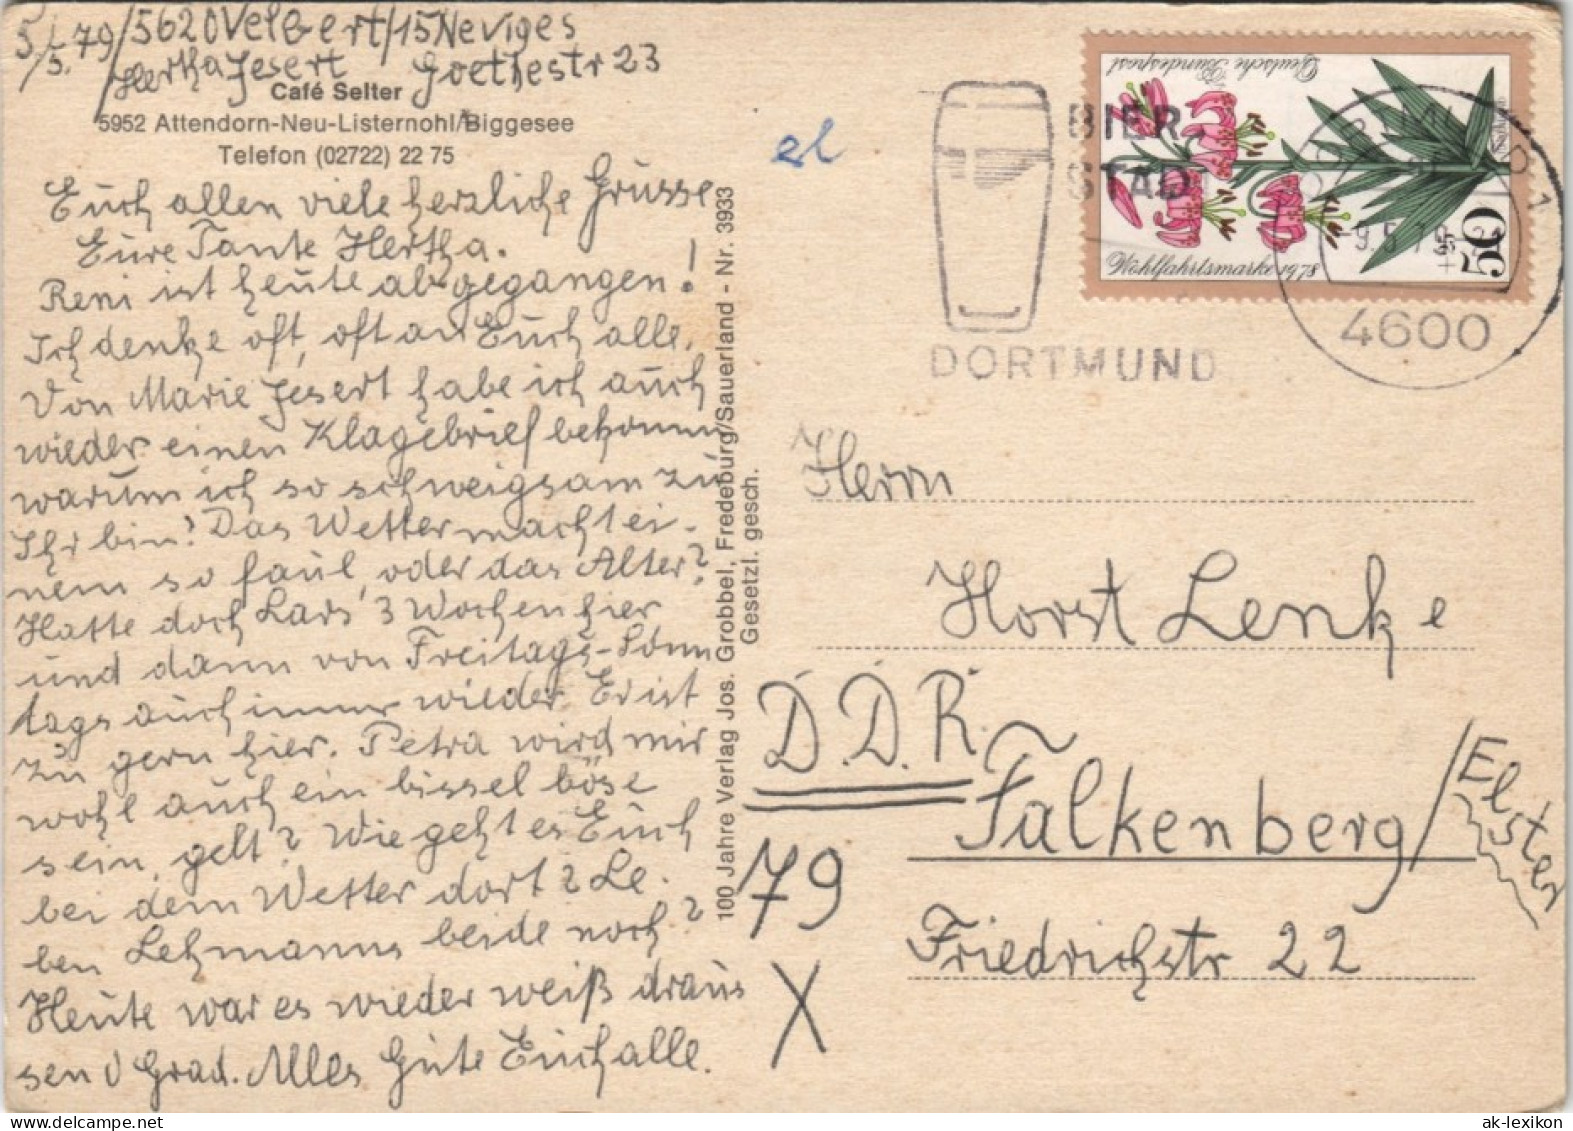 5./5.79/5620 Velbert/15 Neviges
Hertha Jesert Goethestr 23
Café Selter
5952 Attendorn-Neu-Listernohl/Biggesee
Telefon (02722) 22 75
Euch allen viele herzliche Grüsse
Eure Tante Hertha.
Reni ist heute abgegangen!
Ich denke oft, oft an Euch alle.
Von Marie Jesert habe ich auch
wieder einen Klagebrief bekommen
warum ich so schweigsam zu
Ihr bin! Das Wetter macht ei-
nem so faul, oder das Alter?
Hatte doch Lars 3 Wochen hier
und dann von Freitags-Sonn
tags auch immer wieder. Er ist
zu gern hier. Petra wird mir
wohl auch ein bissel böse
sein, gelt? Wie geht es Euch
bei dem Wetter dort? Le-
ben Lehmanns beide noch?
Heute war es wieder weiß draus
sen 0 Grad. Alles Gute Euch alle.
100 Jahre Verlag Jos. Grobbel, Fredeburg/Sauerland - Nr. 3933
Gesetzl. gesch.
BIER
STADT
DORTMUND
Deutsche Bundespost
Wohlfahrtsmarke 1978
50
+25
DORTMUND 1
-9.5.79-21
4600
Herrn
Horst Lenke
D.D.R.
Falkenberg/Elster
79
Friedrichstr 22
X
ak-lexikon